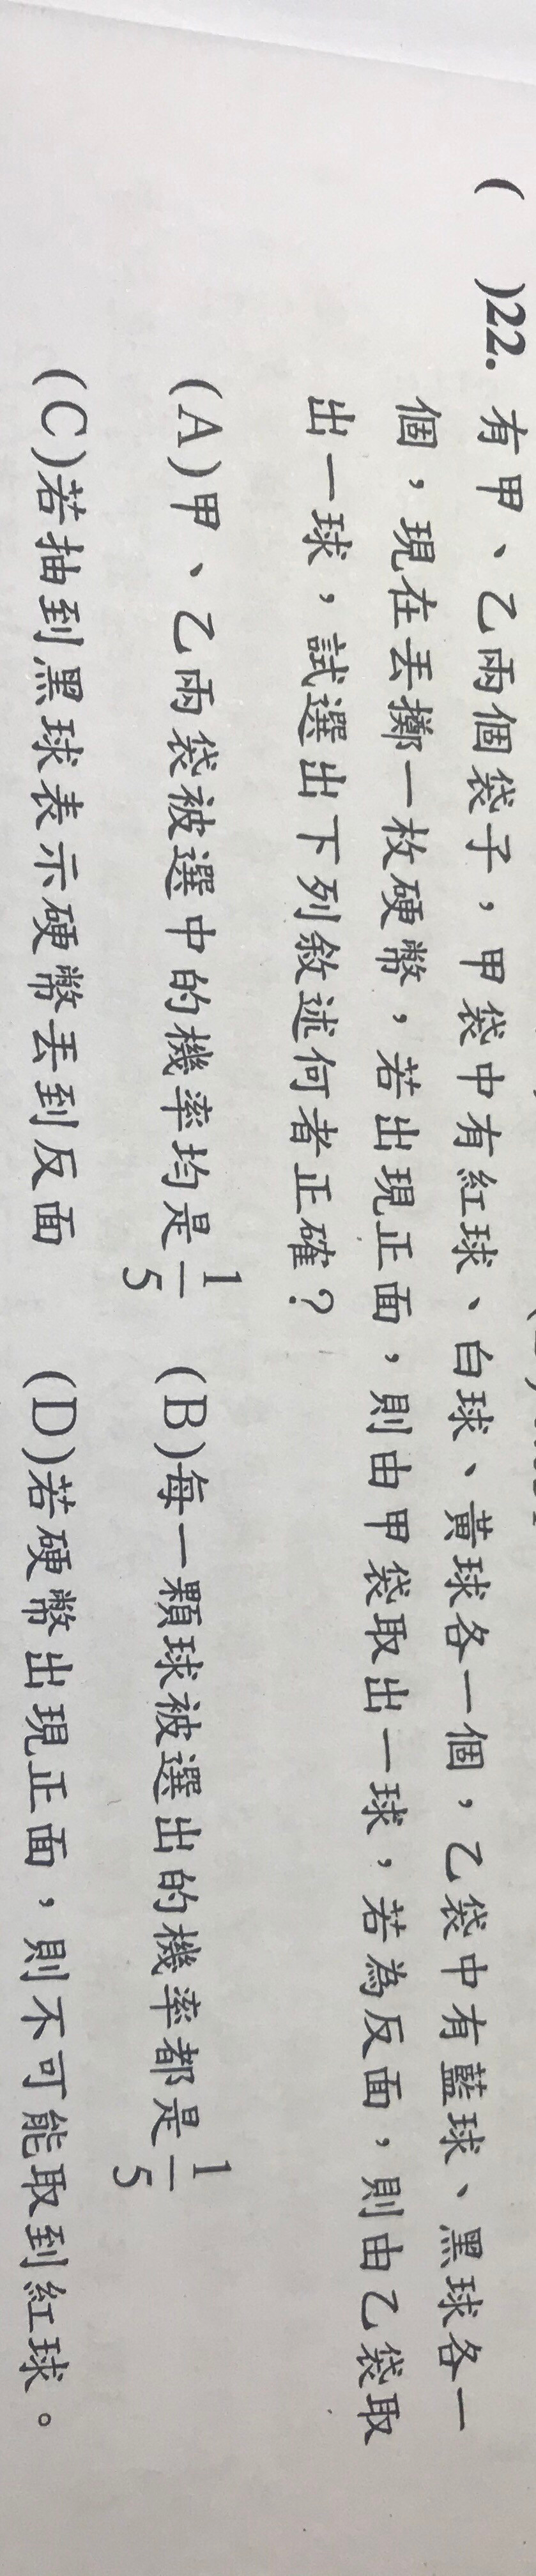 (　)22. 有甲、乙兩個袋子，甲袋中有紅球、白球、黃球各一個，乙袋中有藍球、黑球各一
個，現在丟擲一枚硬幣，若出現正面，則由甲袋取出一球，若為反面，則由乙袋取
出一球，試選出下列敘述何者正確？
(A)甲、乙兩袋被選中的機率均是1/5　(B)每一顆球被選出的機率都是1/5
(C)若抽到黑球表示硬幣丟到反面　(D)若硬幣出現正面，則不可能取到紅球。